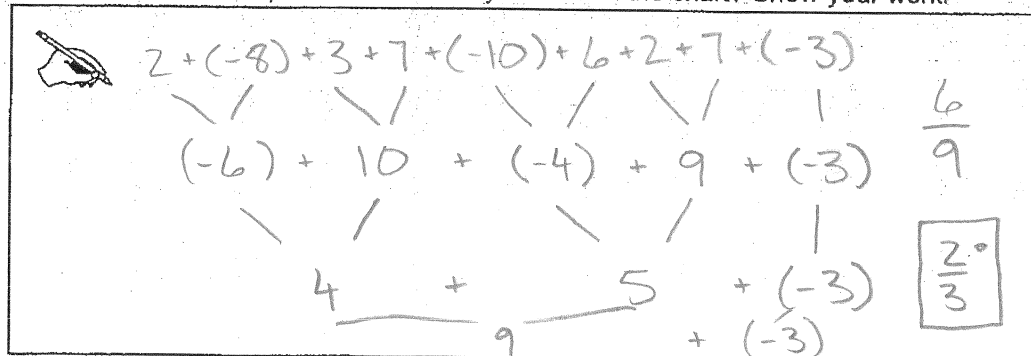 2 + (-8) + 3 + 7 + (-10) + 6 + 2 + 7 + (-3)
(-6) + 10 + (-4) + 9 + (-3)
4 + 5 + (-3)
9 + (-3)
6/9
2/3°